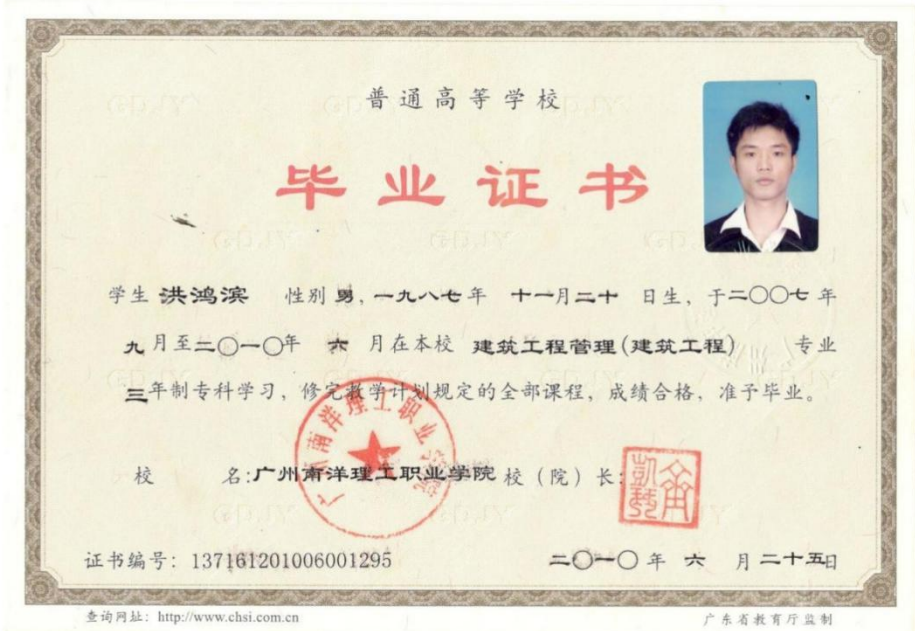 普通高等学校
毕业证书
学生 洪鸿滨 性别 男，一九八七年 十一月二十 日生，于二〇〇七年
九月至二〇一〇年 六 月在本校 建筑工程管理(建筑工程) 专业
三年制专科学习，修完教学计划规定的全部课程，成绩合格，准予毕业。
校 名:广州南洋理工职业学院 校（院）长:
广州南洋理工职业学院
证书编号：137161201006001295 二〇一〇年 六 月 二十五日
查询网址：http://www.chsi.com.cn 广东省教育厅监制